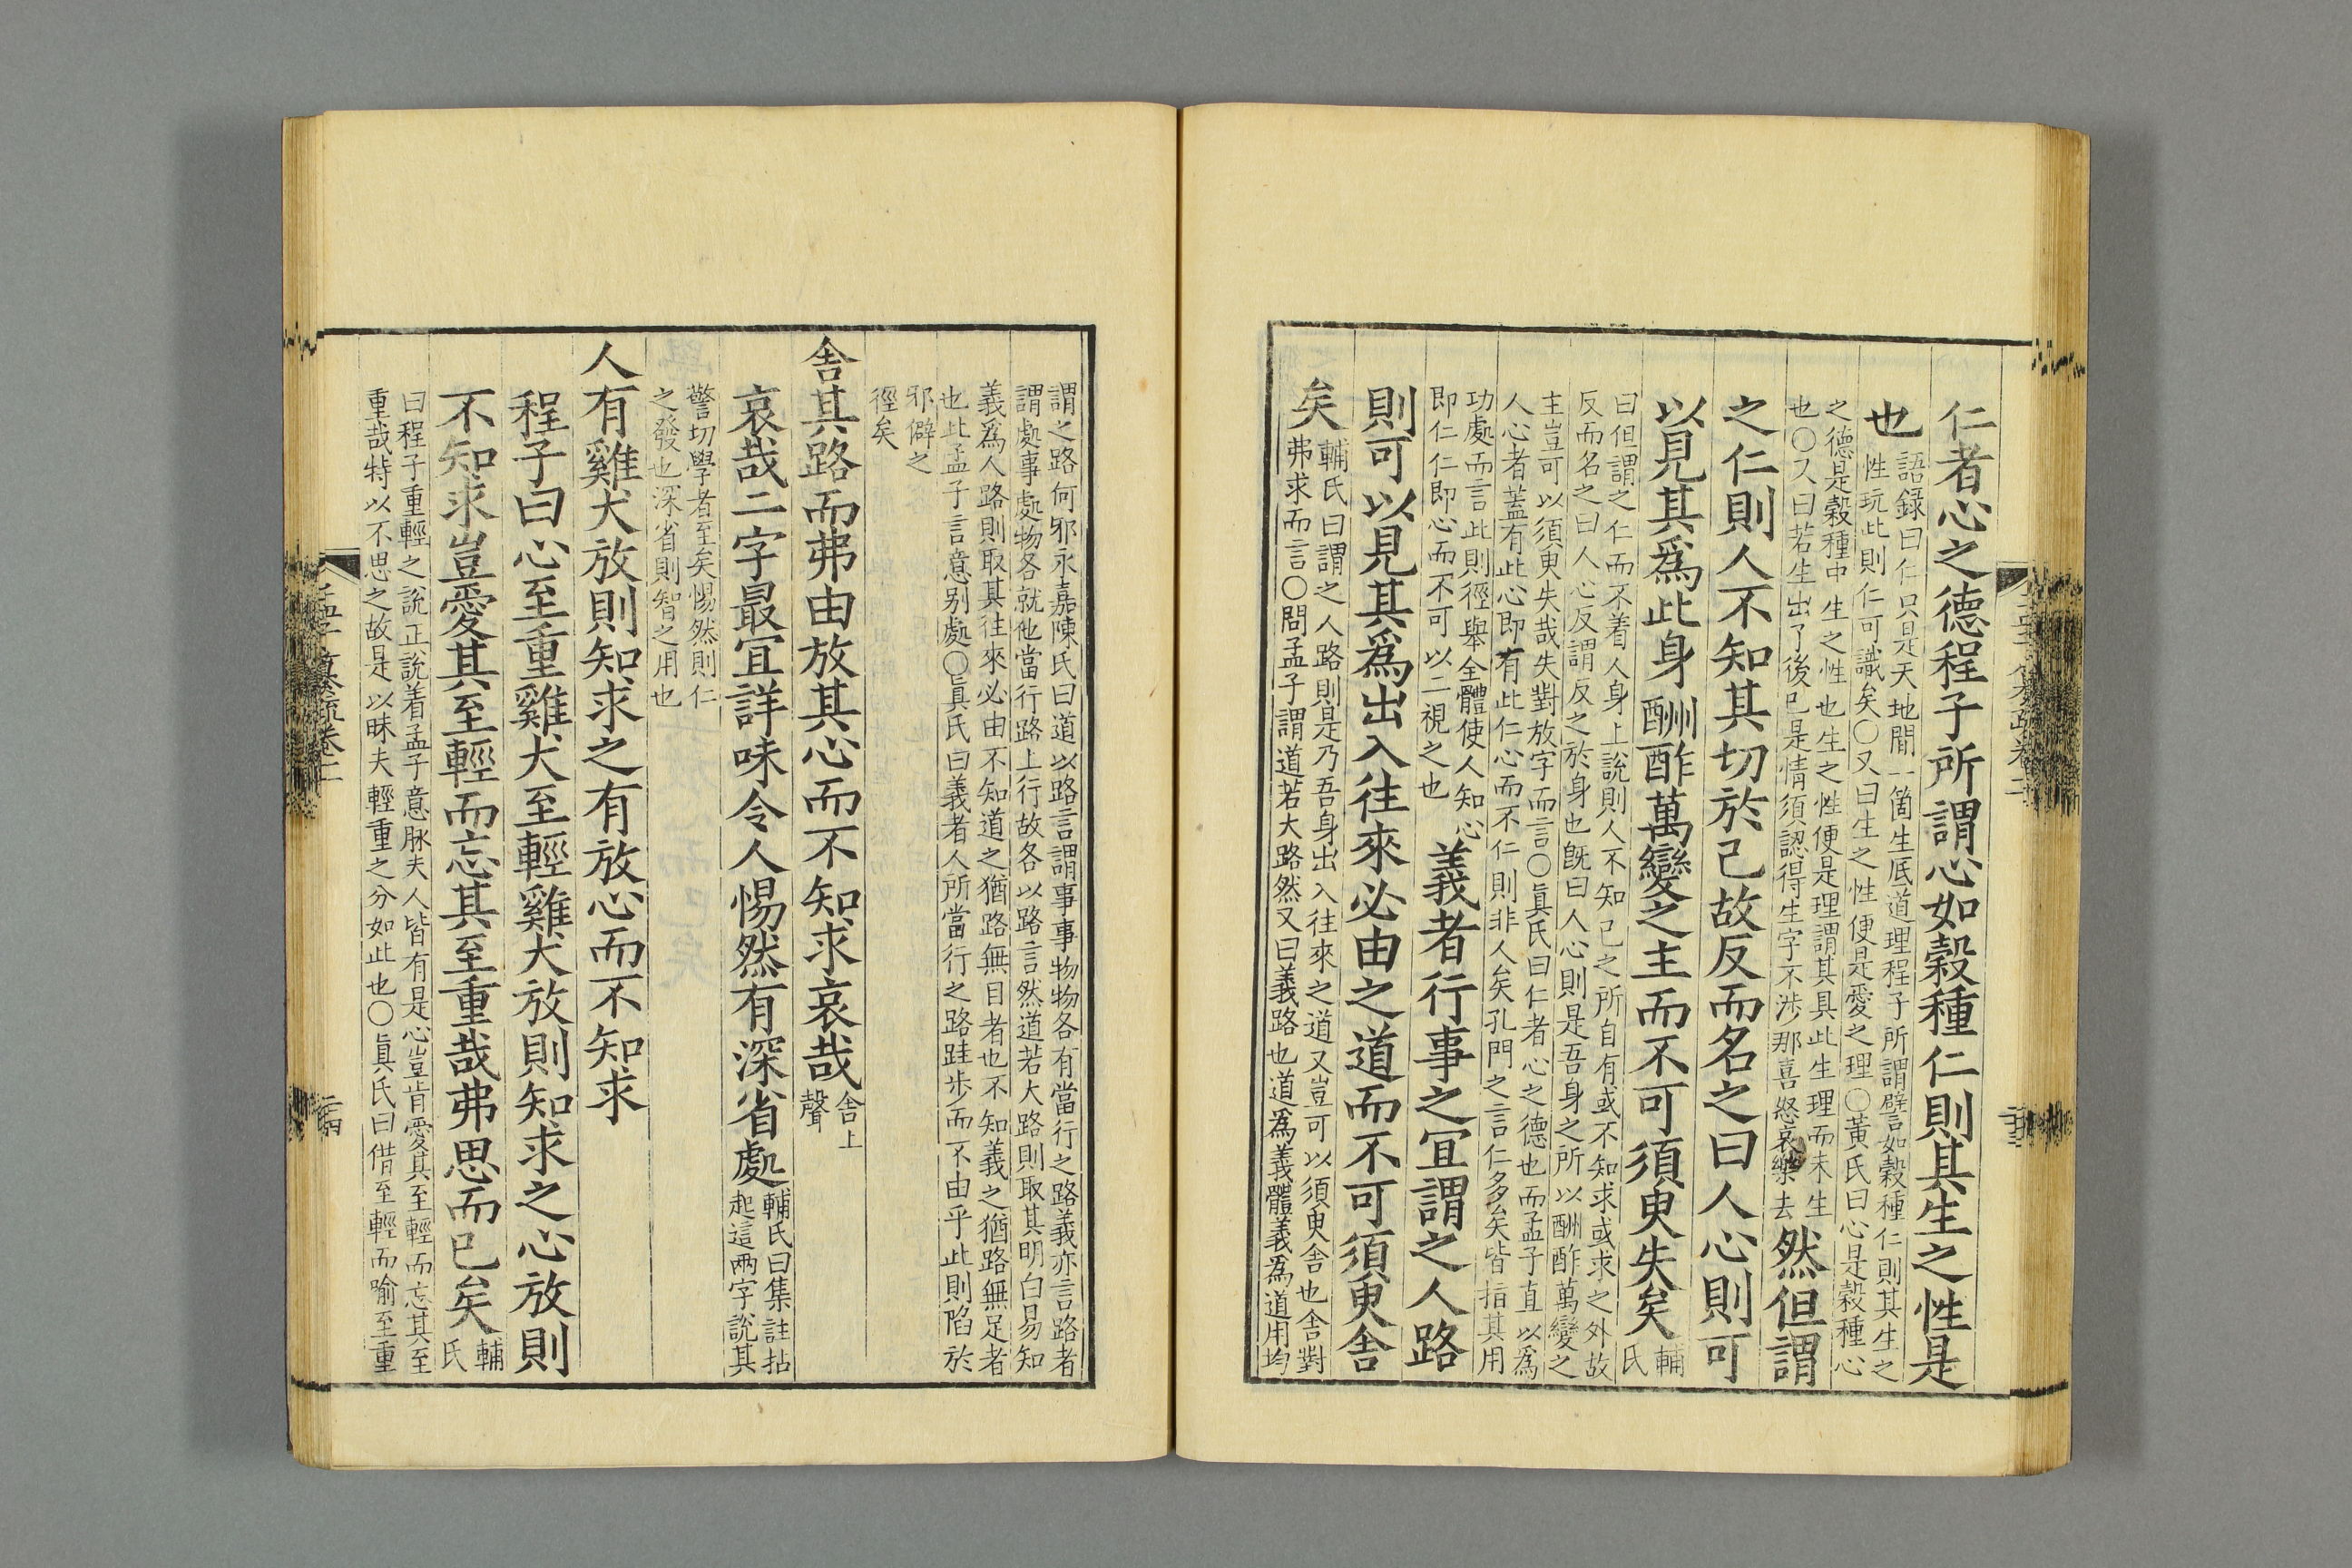 仁者心之德程子所謂心如穀種仁則其生之性是
也
語録曰仁只是天地間一箇生底道理程子所謂譬如穀種仁則其生之
性玩此則仁可識矣〇又曰生之性便是愛之理〇黃氏曰心是穀種心
之德是穀種中生之性也生之性便是理謂其具此生理而未生
也〇又曰若生出了後已是情須認得生字不涉那喜怒哀樂去
然但謂
之仁則人不知其切於己故反而名之曰人心則可
以見其爲此身酬酢萬變之主而不可須臾失矣
輔
氏
曰但謂之仁而不着人身上說則人不知已之所自有或不知求或求之外故
反而名之曰人心反謂反之於身也旣曰人心則是吾身之所以酬酢萬變之
主豈可以須臾失哉失對放字而言〇眞氏曰仁者心之德也而孟子直以爲
人心者蓋有此心即有此仁心而不仁則非人矣孔門之言仁多矣皆指其用
功處而言此則徑舉全體使人知心
即仁仁即心而不可以二視之也
義者行事之宜謂之人路
則可以見其爲出入往來必由之道而不可須臾舍
矣
輔氏曰謂之人路則是乃吾身出入往來之道又豈可以須臾舍也舍對
弗求而言〇問孟子謂道若大路然又曰義路也道爲義體義爲道用均
謂之路何邪永嘉陳氏曰道以路言謂事事物物各有當行之路義亦言路者
謂處事處物各就他當行路上行故各以路言然道若大路則取其明白易知
義爲人路則取其往來必由不知道之猶路無目者也不知義之猶路無足者
也此孟子言意别處〇眞氏曰義者人所當行之路跬步而不由乎此則陷於
邪僻之
徑矣
舍其路而弗由放其心而不知求哀哉
舍上
聲
哀哉二字最宜詳味令人惕然有深省處
輔氏曰集註拈
起這兩字說其
警切學者至矣惕然則仁
之發也深省則智之用也
人有雞犬放則知求之有放心而不知求
程子曰心至重雞犬至輕雞犬放則知求之心放則
不知求豈愛其至輕而忘其至重哉弗思而已矣
輔
氏
曰程子重輕之說正說着孟子意脉夫人皆有是心豈肯愛其至輕而忘其至
重哉特以不思之故是以昧夫輕重之分如此也〇眞氏曰借至輕而喻至重